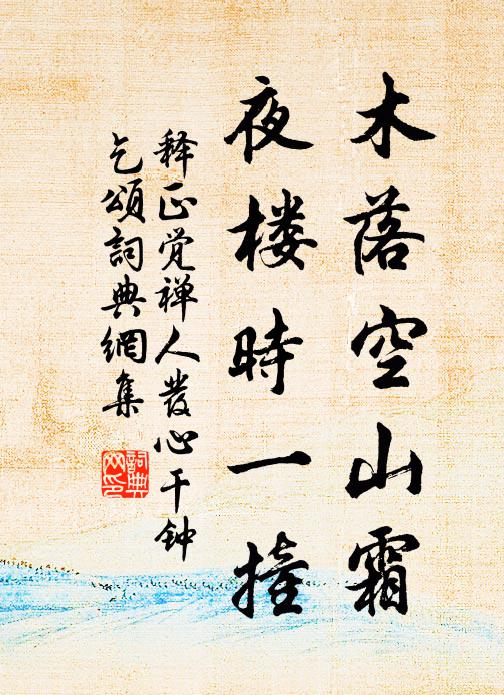 木落空山霜
夜楼時一撞
释正觉禅人發心干钟
乞頌詞典網集
詞典
网印